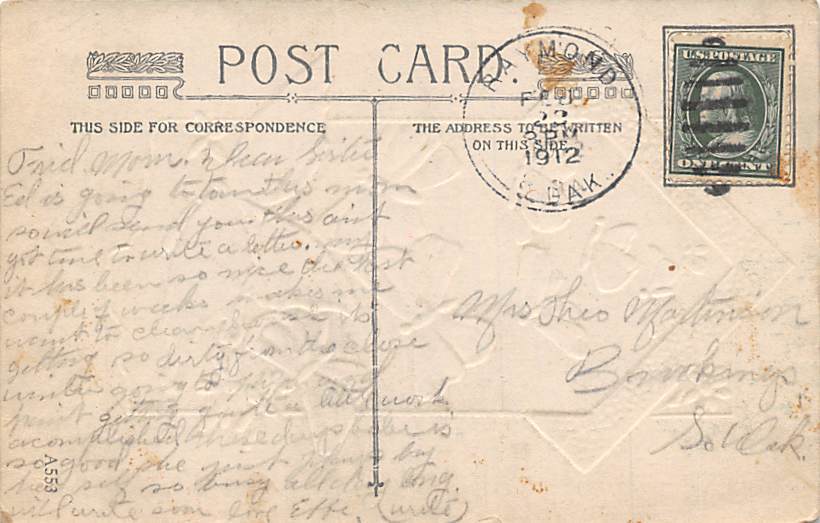 POST CARD.
THIS SIDE FOR CORRESPONDENCE
THE ADDRESS TO BE WRITTEN
ON THIS SIDE
RAYMOND
FEB
3 PM
1912
S. DAK.
U.S. POSTAGE
ONE CENT
Frid Morn. Dear Sister
Ed is going to town this morn
so will send you this aint
got time to write a letter. my
it has been so nice the last
couple of weeks makes me
want to clean house its
getting so dirty from the close
winter going to paper and
paint getting quite a little work
acomplished these days baby is
so good she just plays by
her self so busy all day long
will write soon love Effie (write)
Mrs Theo Martinson
Brookings
So Dak.
A553